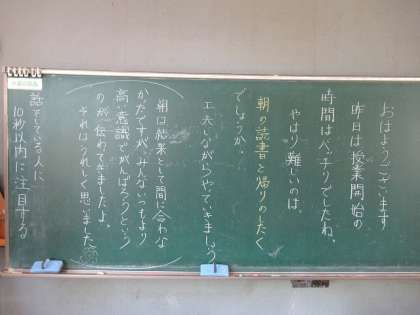 おはようございます
昨日は授業開始の
時間はバッチリでしたね。
やはり難しいのは、
朝の読書と帰りのしたく
でしょうか。
工夫しながらやっていきましょう
朝は結果として間に合わな
かったですが、みんないつもより
高い意識でがんばろうという
のが伝わってきましたよ。
それはうれしく思いました。
話をしている人に、
10秒以内に注目する